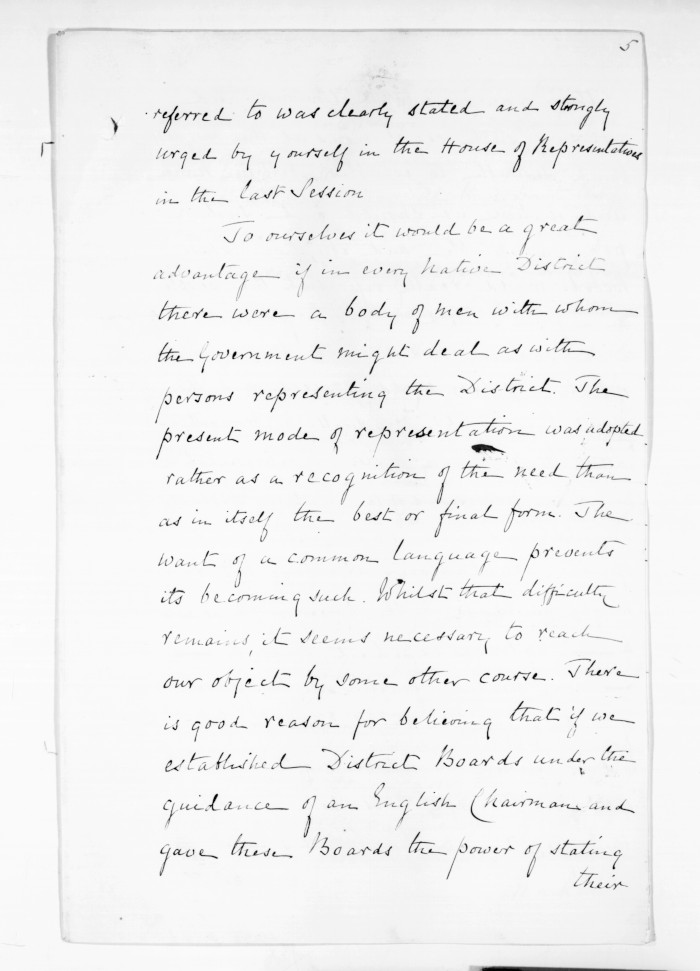 5
referred to was clearly stated and strongly
urged by yourself in the House of Representatives
in the last Session
To ourselves it would be a great
advantage if in every Native District
there were a body of men with whom
the Government might deal as with
persons representing the District. The
present mode of representation was adopted
rather as a recognition of the need than
as in itself the best or final form. The
want of a common language prevents
its becoming such. Whilst that difficulty
remains, it seems necessary to reach
our object by some other course. There
is good reason for believing that if we
established District Boards under the
guidance of an English Chairman and
gave these Boards the power of stating
their